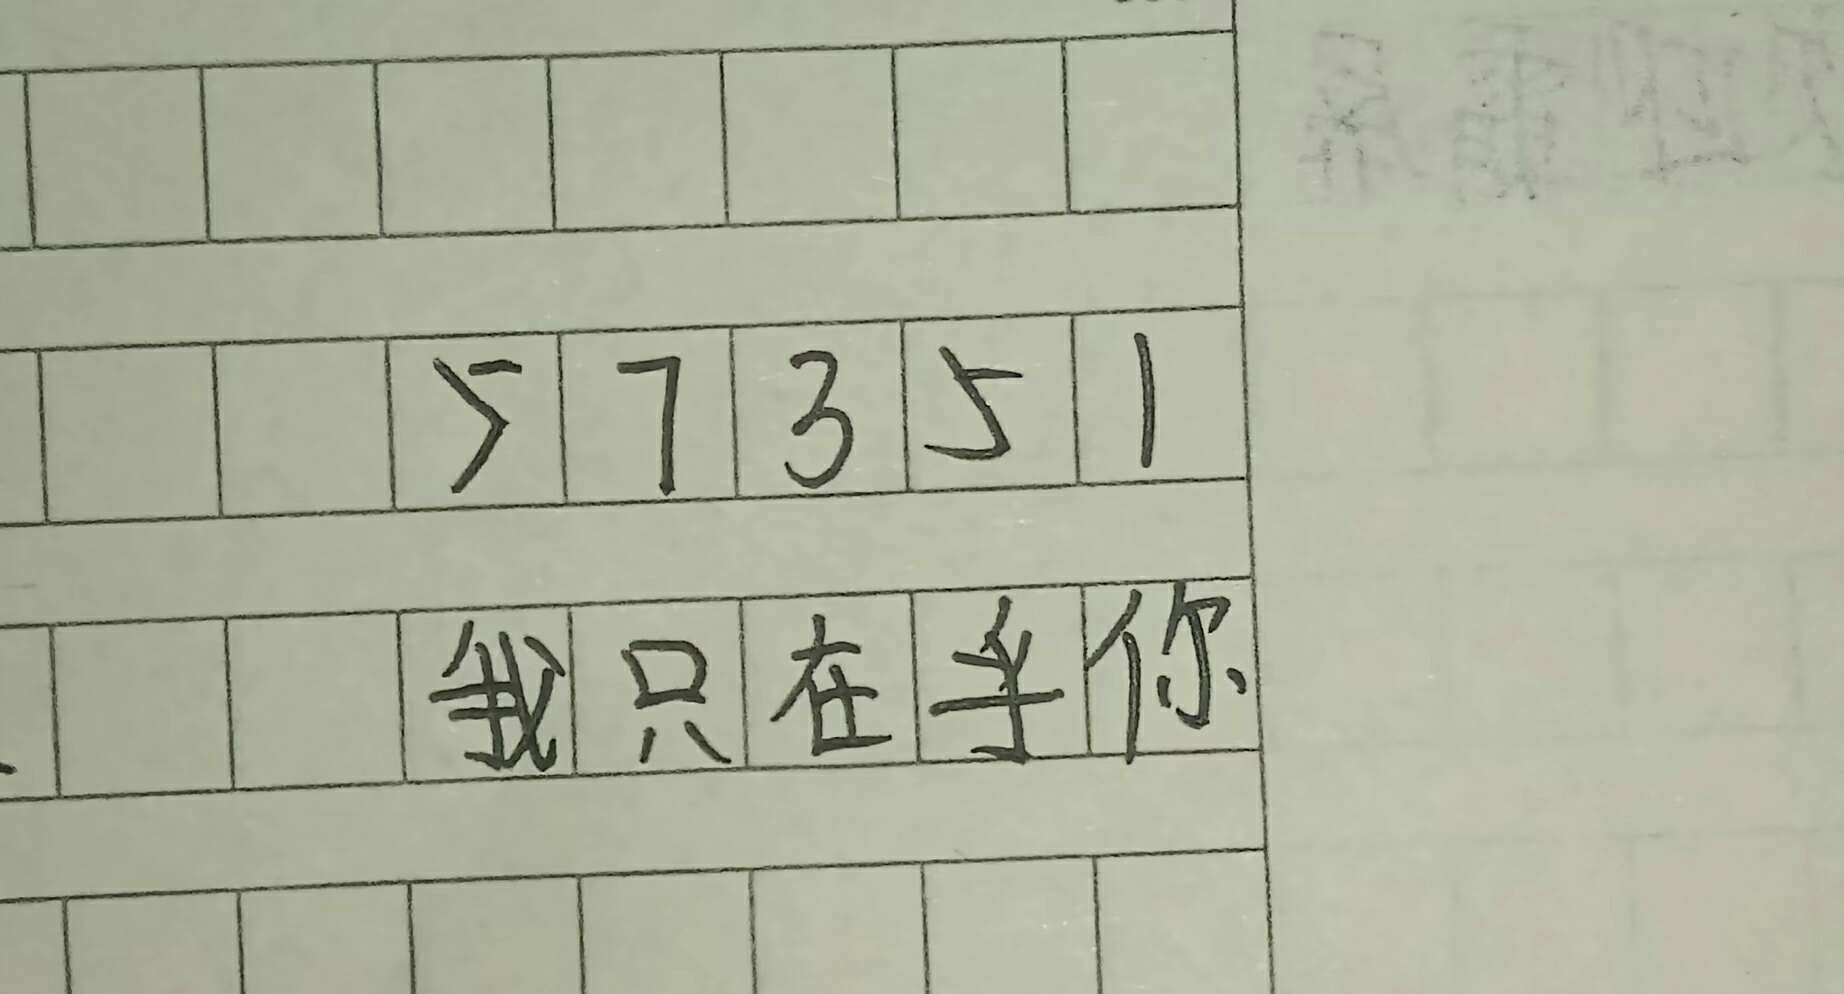 57351
我只在乎你